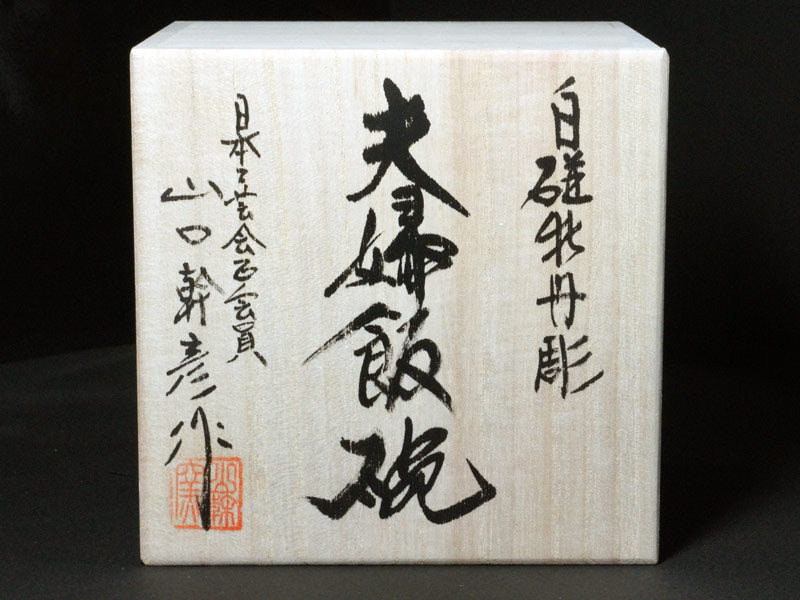 白磁牡丹彫
夫婦飯碗
日本工芸会正会員
山口幹彦作